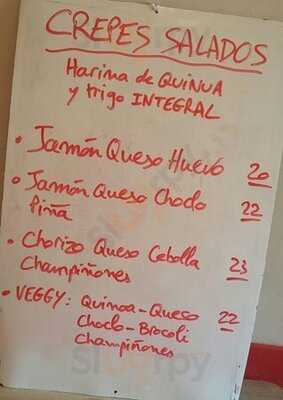 CREPES SALADOS
Harina de QUINUA
y trigo INTEGRAL
• Jamón Queso Huevo 20
• Jamón Queso Choclo 22
Piña
• Chorizo Queso Cebolla 23
Champiñones
• VEGGY: Quinoa-Queso 22
Choclo-Brocoli
Champiñones
Sluurpy